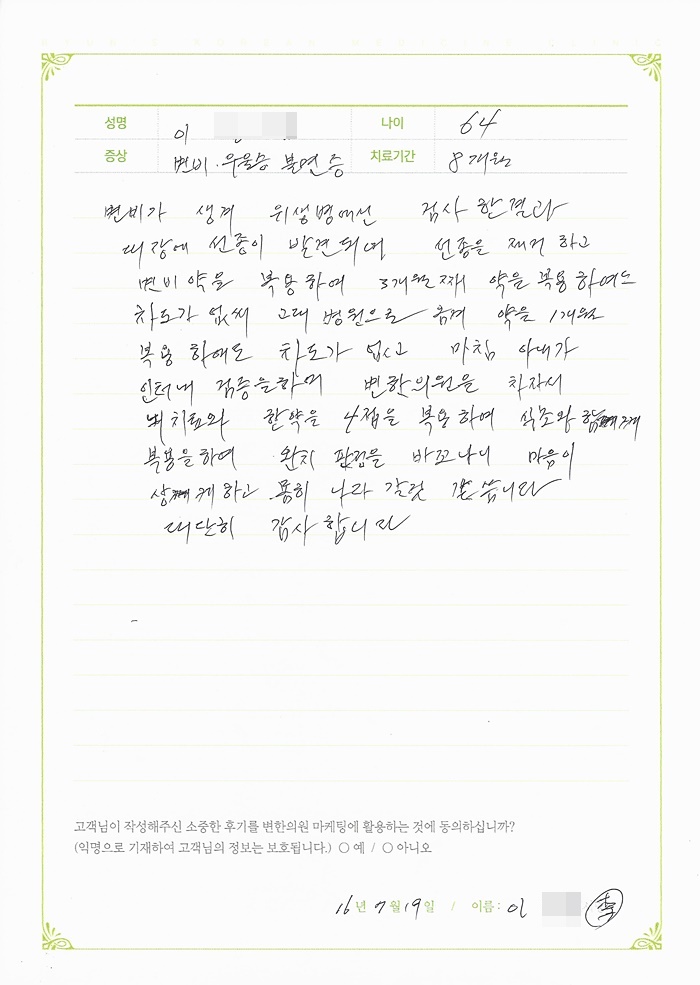 성명 이 나이 64
증상 변비·우울증 불면증 치료기간 8개월
변비가 생겨 위생병에선 검사 한결과
대장에 선종이 발견되며 선종을 제거 하고
변비약을 복용하여 3개월째 약을 복용하여도
차도가 없써 고대 병원으로 옴겨 약을 1개월
복용 하애도 차도가 업고 마침 아내가
인터내 검증을하며 변한의원을 차자서
뇌치료와 한약을 4접을 복용하여 식초와 함께
복용을하여 완치 판정을 바꼬나니 마음이
케하고 나라 갈것 갓씁니다
대단히 감사합니다
고객님이 작성해주신 소중한 후기를 변한의원 마케팅에 활용하는 것에 동의하십니까?
(익명으로 기재하여 고객님의 정보는 보호됩니다.) ○ 예 / ○ 아니오
16년 7월 19일 / 이름 : 이 李